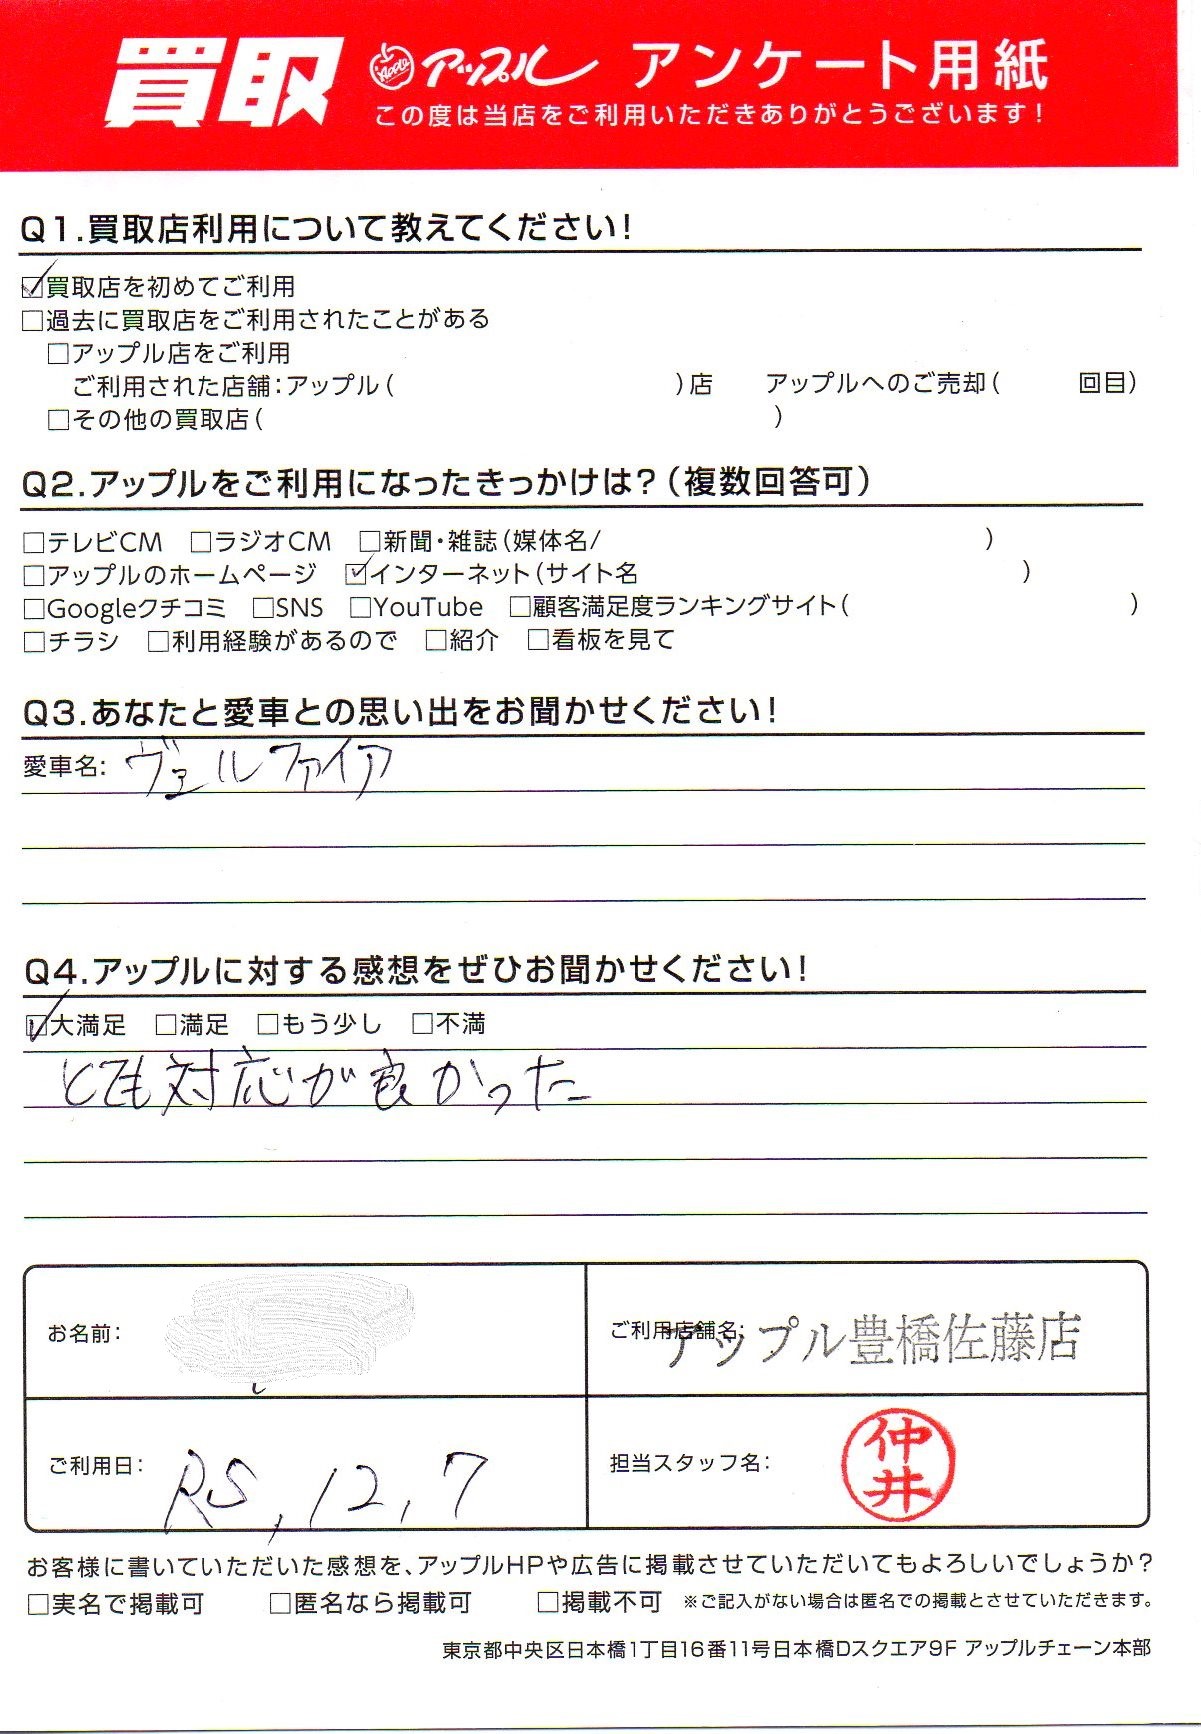 買取 Apple アップル アンケート用紙
この度は当店をご利用いただきありがとうございます!
Q1.買取店利用について教えてください!
☑買取店を初めてご利用
□過去に買取店をご利用されたことがある
□アップル店をご利用
ご利用された店舗:アップル( )店 アップルへのご売却( 回目)
□その他の買取店( )
Q2.アップルをご利用になったきっかけは?(複数回答可)
□テレビCM □ラジオCM □新聞・雑誌(媒体名/ )
□アップルのホームページ ☑インターネット(サイト名 )
□Googleクチコミ □SNS □YouTube □顧客満足度ランキングサイト( )
□チラシ □利用経験があるので □紹介 □看板を見て
Q3.あなたと愛車との思い出をお聞かせください!
愛車名: ヴェルファイア
Q4.アップルに対する感想をぜひお聞かせください!
☑大満足 □満足 □もう少し □不満
とても対応が良かった
お名前:
ご利用店舗名: アップル豊橋佐藤店
ご利用日: R5,12,7
担当スタッフ名: 仲井
お客様に書いていただいた感想を、アップルHPや広告に掲載させていただいてもよろしいでしょうか?
□実名で掲載可 □匿名なら掲載可 □掲載不可 ※ご記入がない場合は匿名での掲載とさせていただきます。
東京都中央区日本橋1丁目16番11号日本橋Dスクエア9F アップルチェーン本部